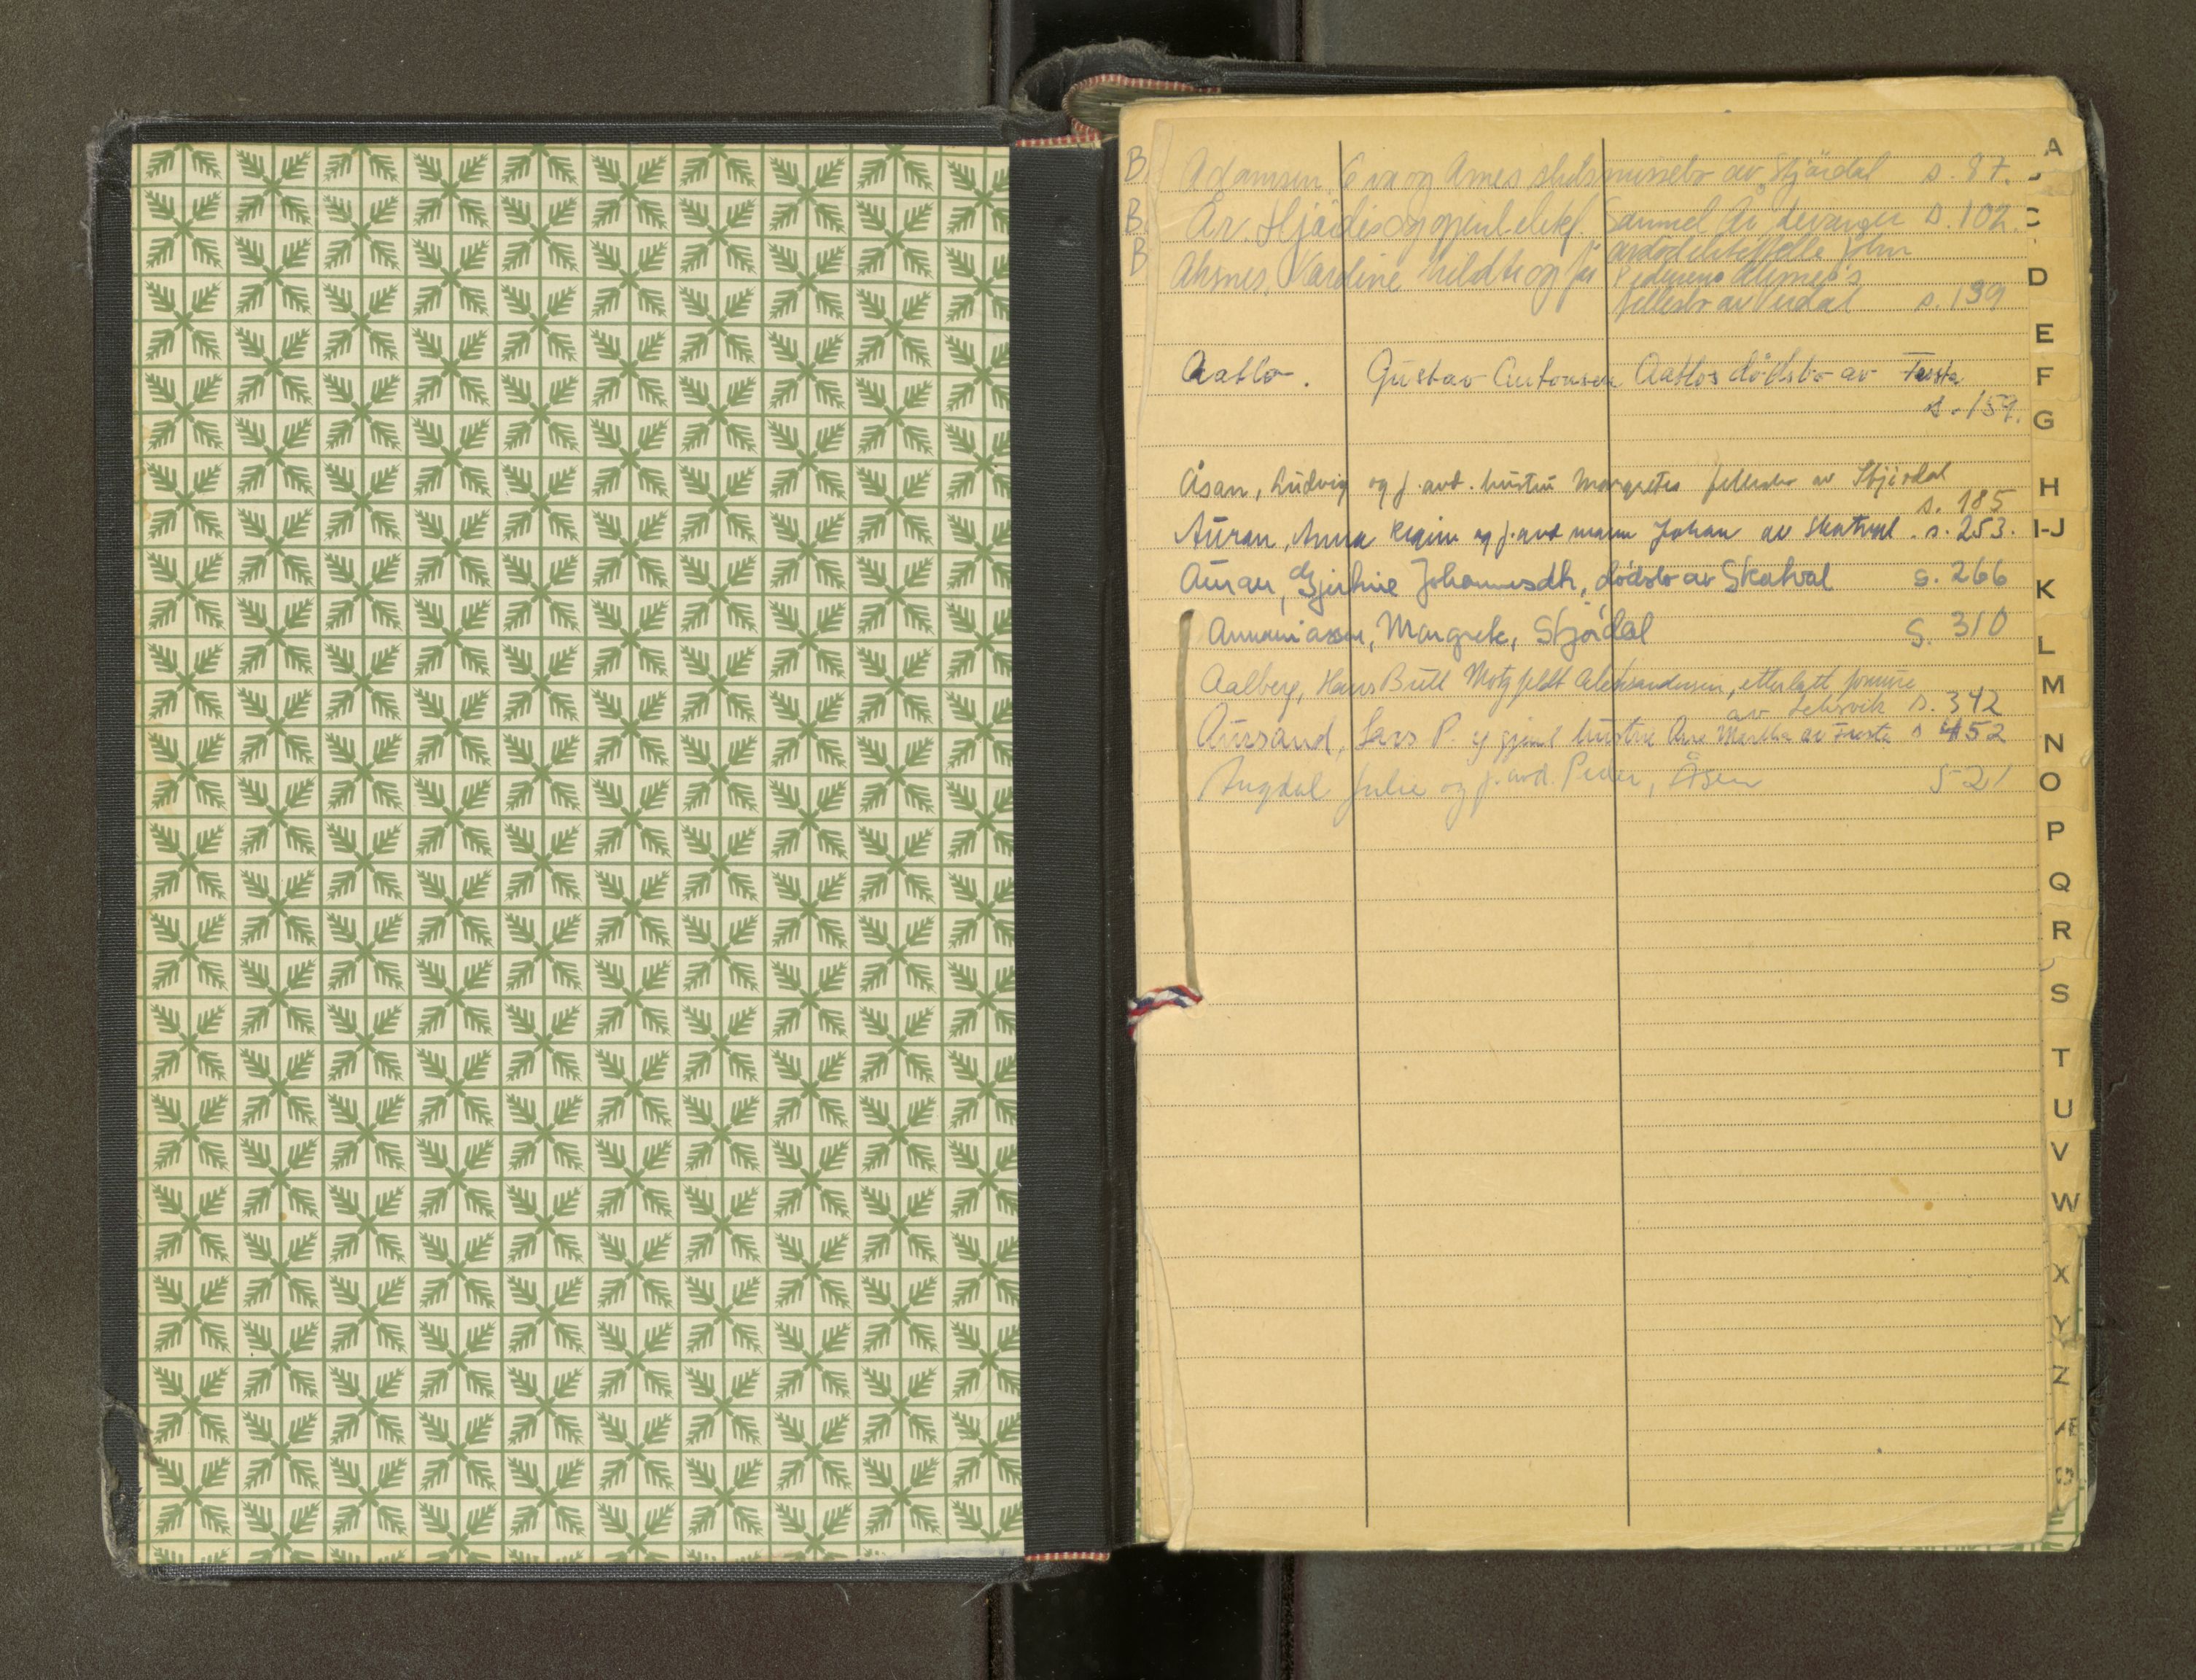 A
B. Adamsen, Eva og Arnes skilsmissebo av Stjördal s. 87.
B. Ar. Hjördis og gjenl. ektef. Samuel Ar. Levanger s. 102.
B Ahsnes, Nardine og avdöd ektefelle John
Pedersens
fellesbo av s. 139
Aatlo. Gustav Antonsen Aatlos dödsbo av Frosta
s. 159.
Åsan, Ludvig og f. avd. hustru Margretes fellesbo av Stjördal
s. 185
Auran, Anna og f. avd mann Johan av Skatval. s. 253.
Auran, Johannesdtr, dödsbo av Skatval s. 266
Annaniassen, Margrete, Stjördal S. 310
Aalberg, Hans Bull Motzfeldt Aleksandersen, etterlatt formue
av Leksvik s. 342
Aursand, Lars P. og gjenl hustru Martha av Frosta s 452
Augdal Julie og f. avd. Peder, Åsen S 21
A
C
D
E
F
G
H
I-J
K
L
M
N
O
P
Q
R
S
T
U
V
W
X
Y
Z
Æ